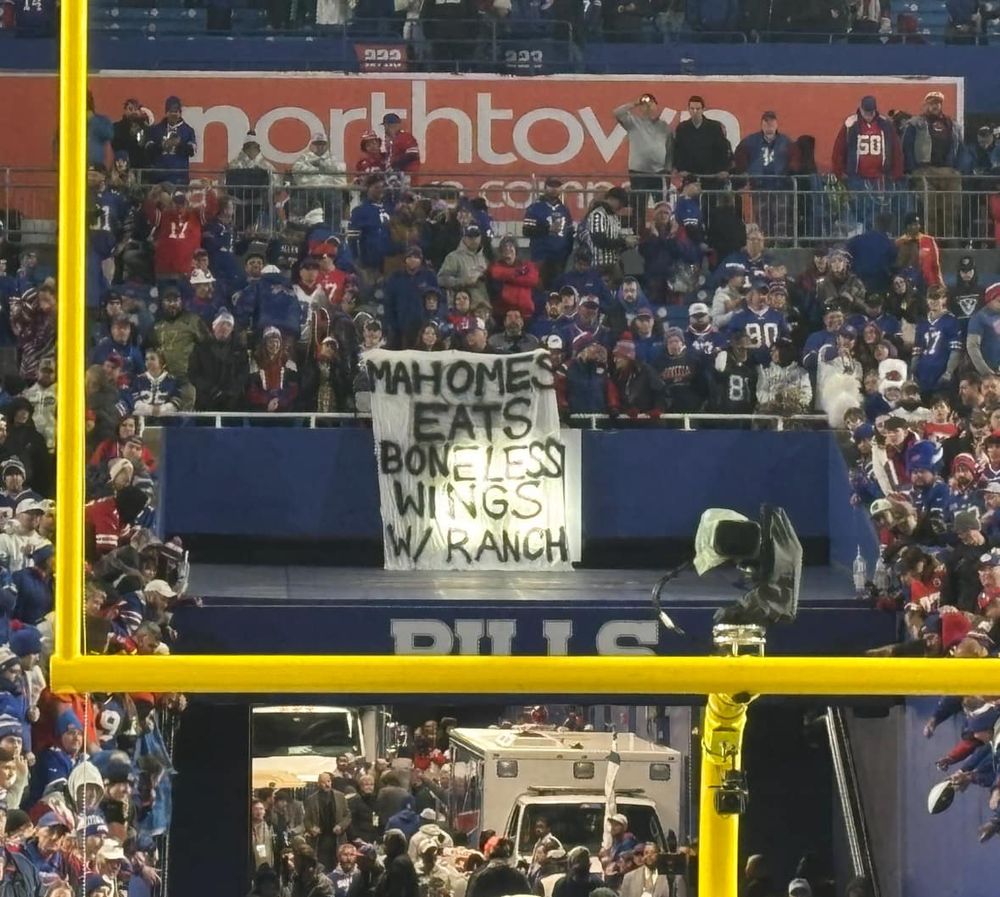 222
223
northtown
MAHOMES
EATS
BONELESS
WINGS
W/ RANCH
BILLS
60
17
80
17
8
9